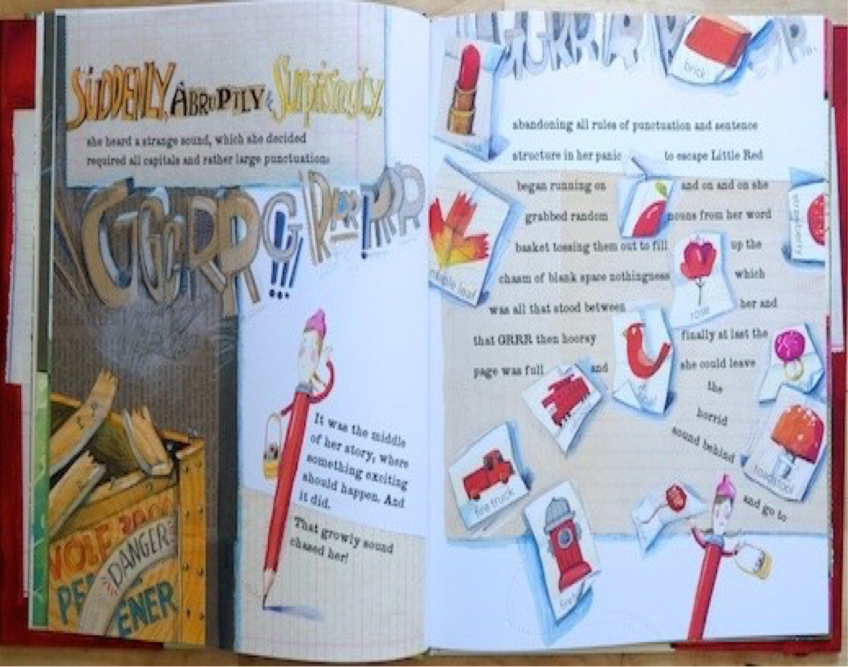 SUDDENLY, ABRUPTLY & SURPRISINGLY,
she heard a strange sound, which she decided
required all capitals and rather large punctuation:
It was the middle
of her story, where
something exciting
should happen. And
it did.
That growly sound
chased her!
WOLF
PE ENER
DANGER
brick
abandoning all rules of punctuation and sentence
structure in her panic to escape Little Red
began running on and on and on she
grabbed random nouns from her word
basket tossing them out to fill up the
chasm of blank space nothingness which
was all that stood between her and
that GRRR then hooray finally at last the
page was full and she could leave
the
horrid
sound behind
and go to
maple leaf
strawberry
rose
toadstool
fire truck